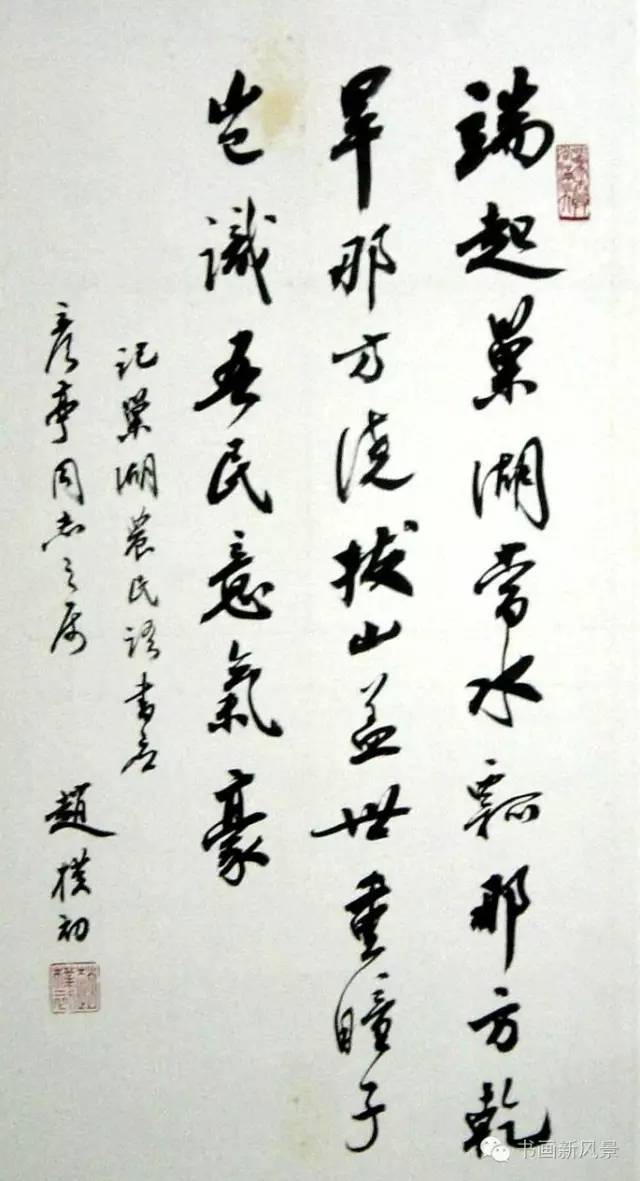 端起巢湖當水瓢那方乾
旱那方澆拔山蓋世重瞳子
豈識吾民意氣豪
記巢湖農民語書應
彦亭同志之属
趙樸初
书画新风景